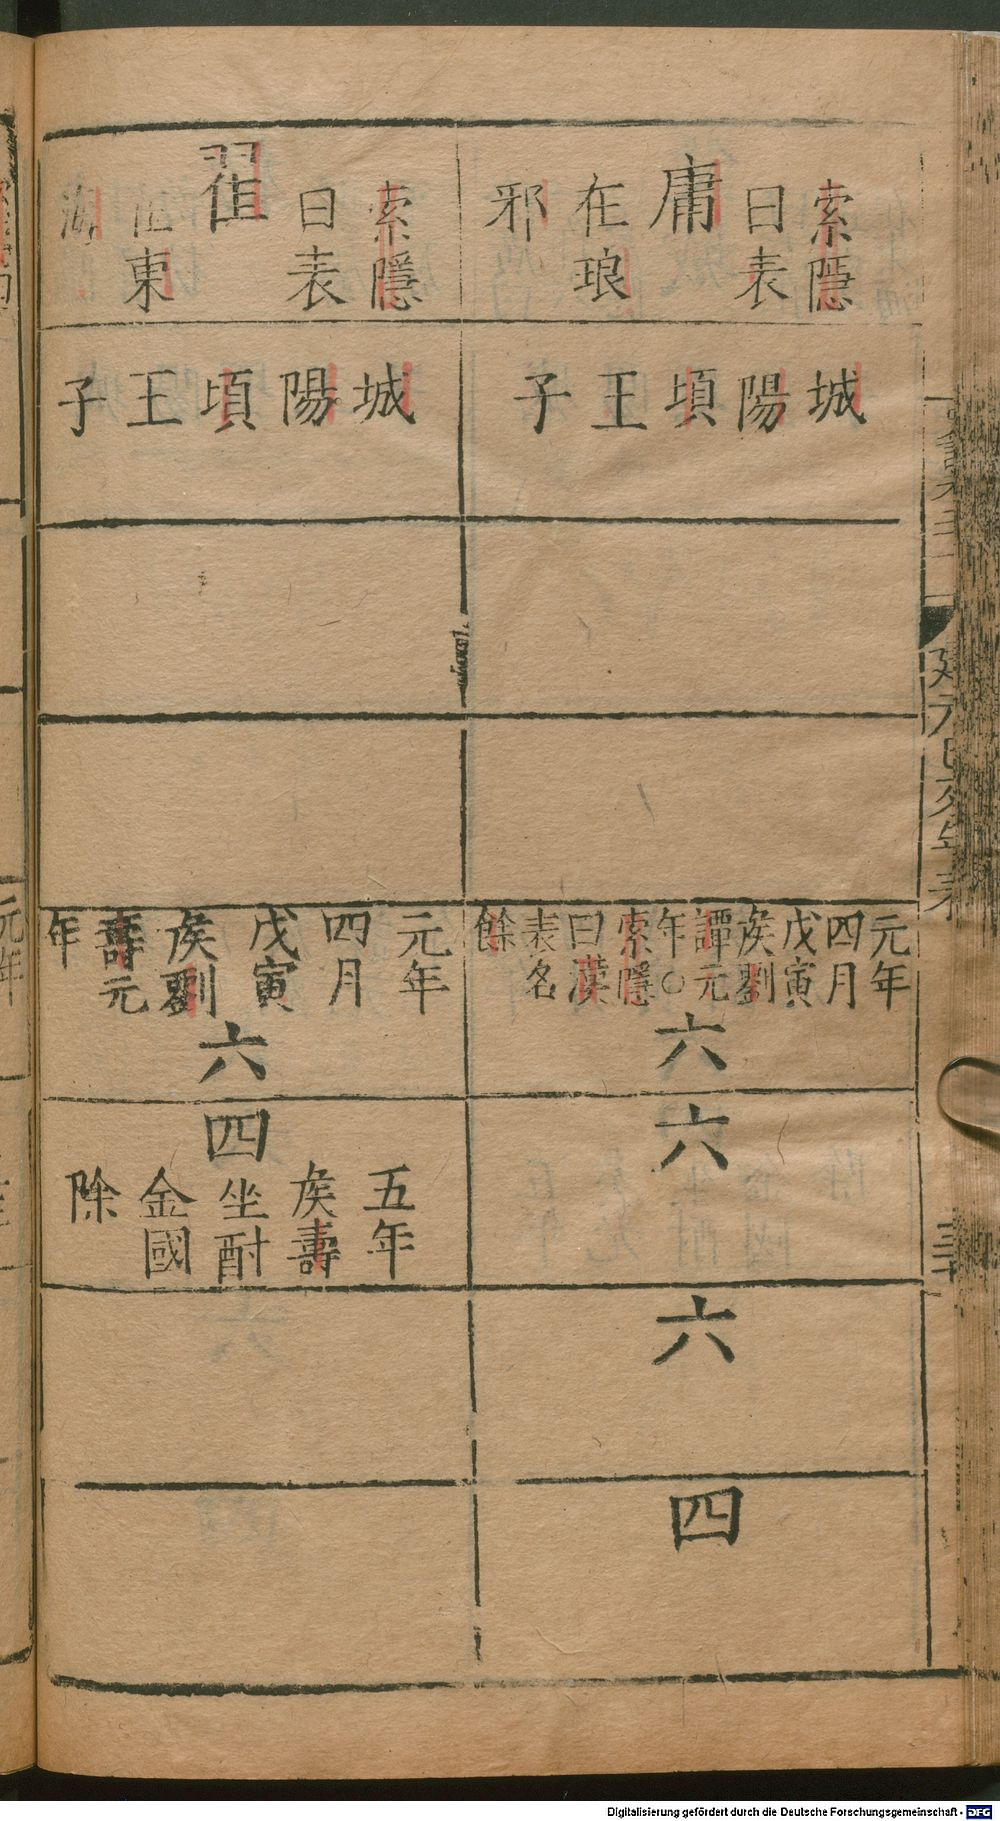 索隱
曰表
庸
在琅
邪
城
陽
頃
王
子
元年
四月
戊寅
矦劉
譚元
年○
索隱
曰漢
表名
餘
六
六
六
四
索隱
曰表
翟
在東
海
城
陽
頃
王
子
元年
四月
戊寅
矦劉
壽元
年
六
四
五年
矦壽
坐酎
金國
除
Digitalisierung gefördert durch die Deutsche Forschungsgemeinschaft - DFG